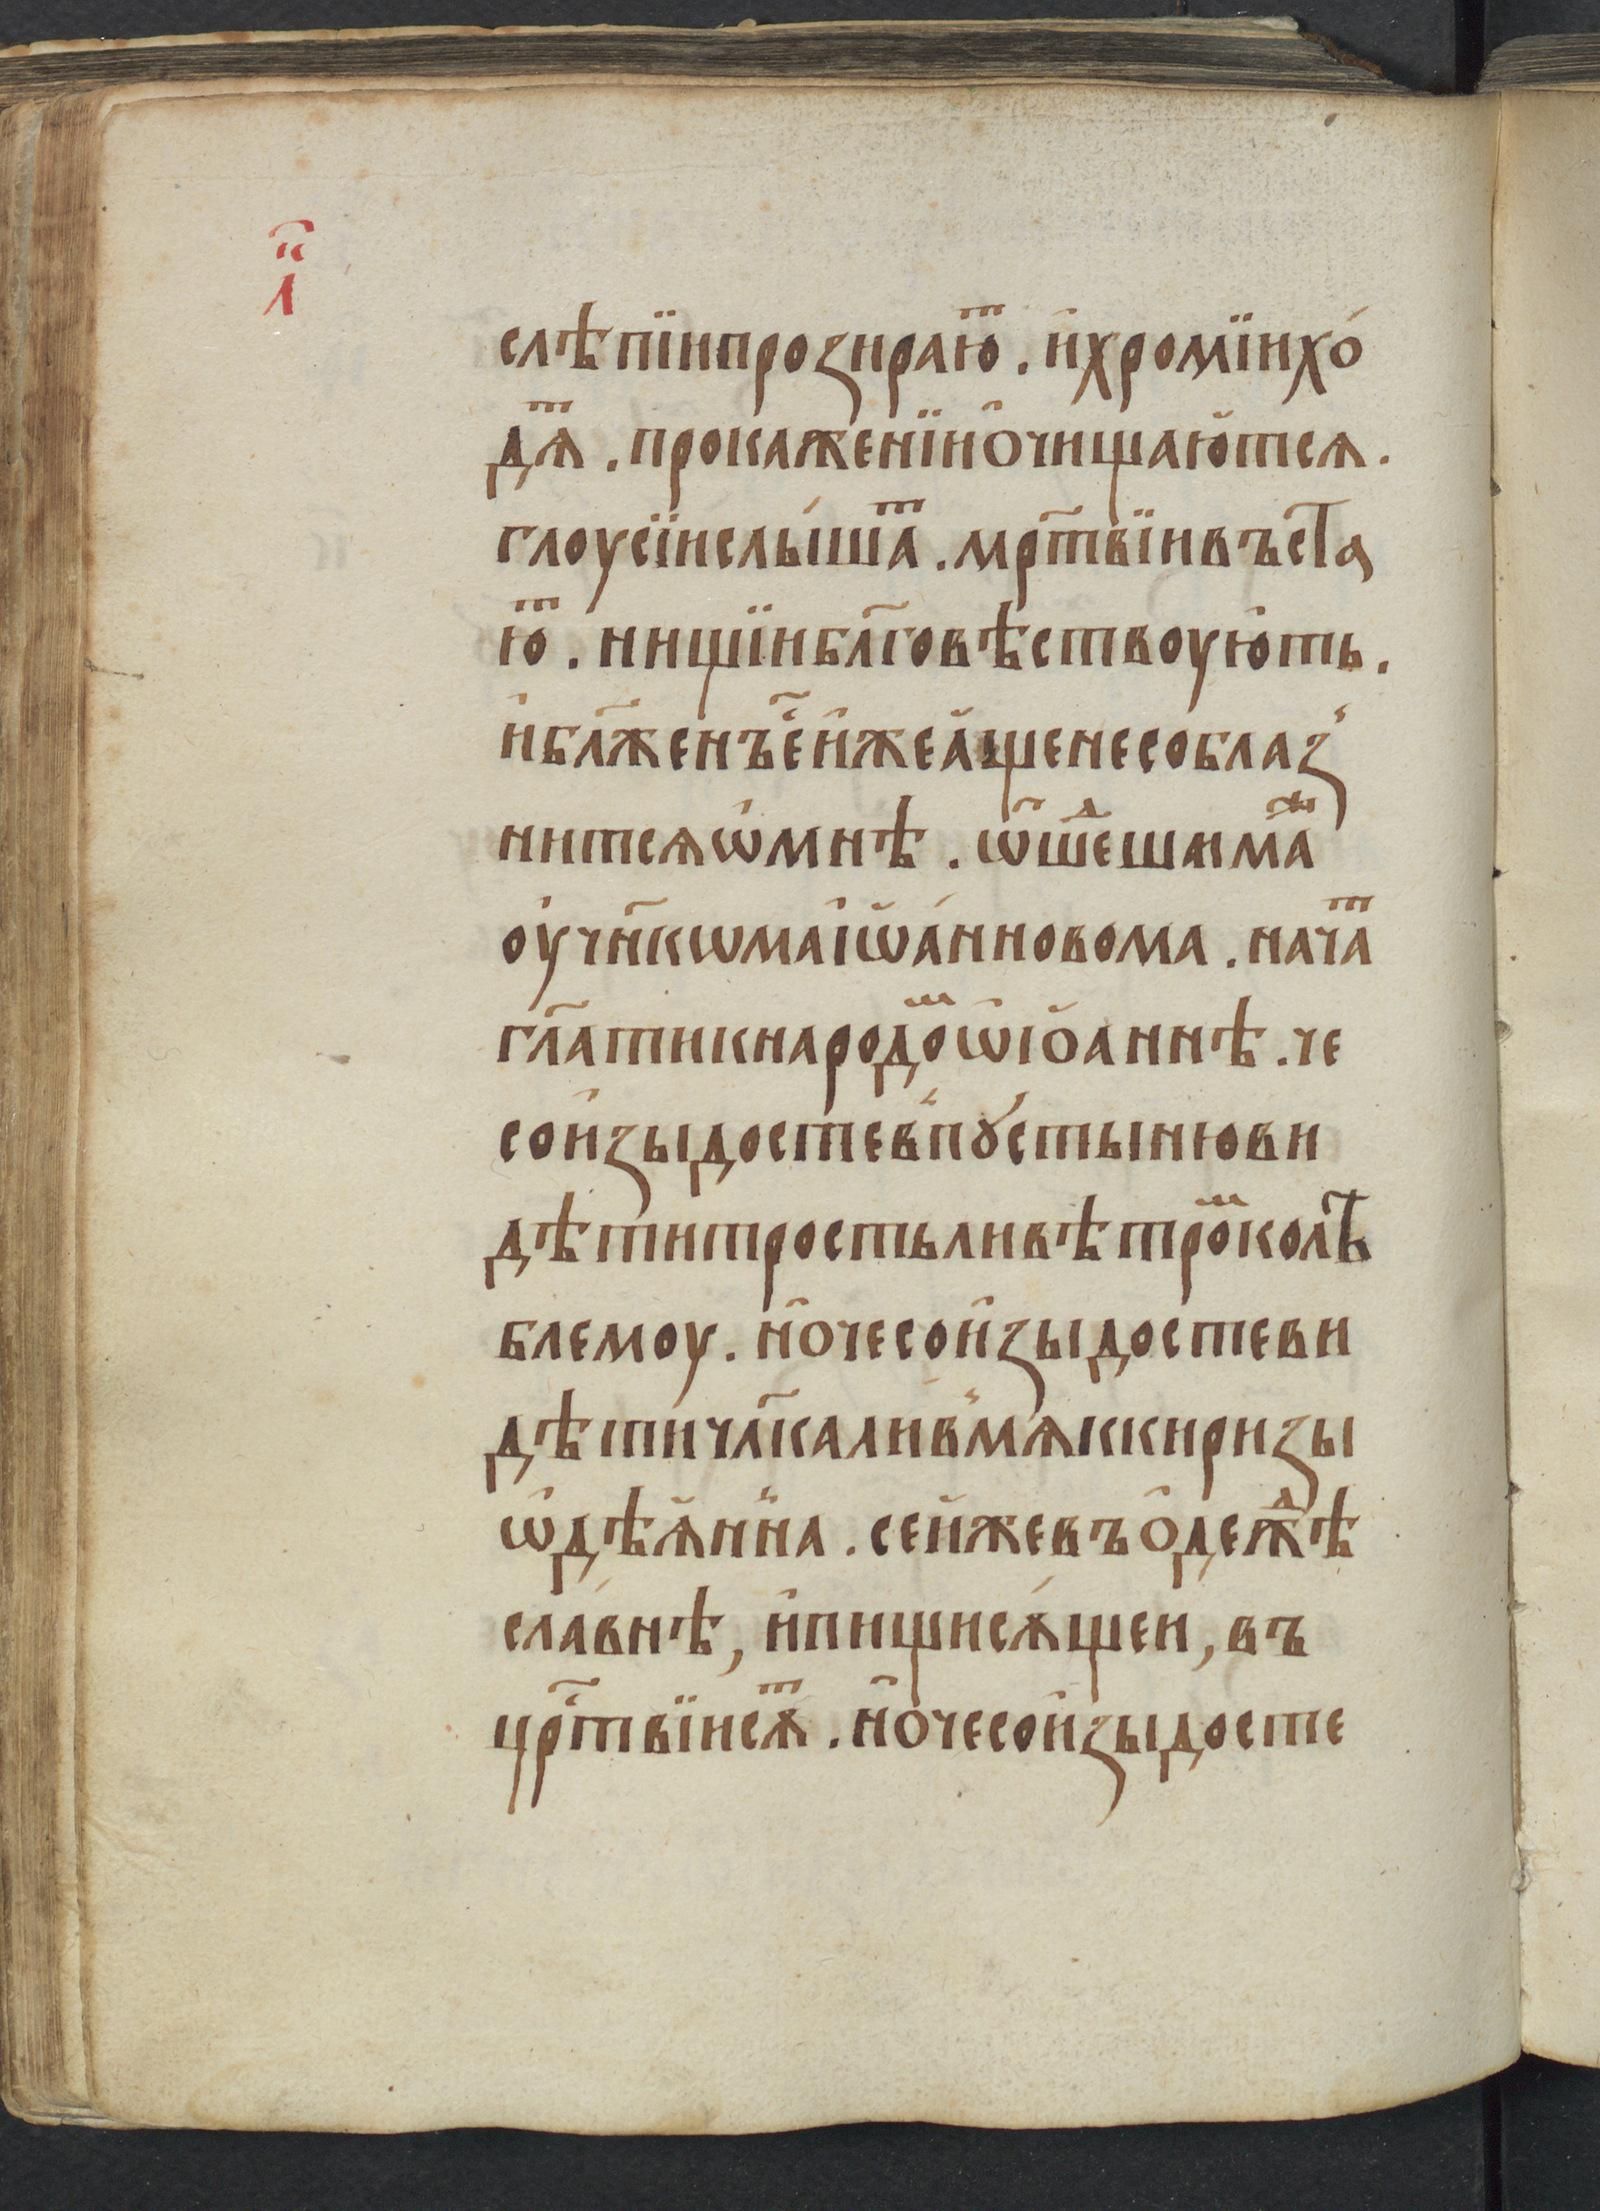 к҃
л
слѣпїи прозираю҇ⷮ. и҆ хромїи хо́
дѧⷮ. прокаженїи ѻ҆чищаю҆тсѧ.
глоусїи слы́шаⷮ. мр҃твїи въста
юⷮ. нищїи бл҃говѣствоують.
и҆ бл҃женъ є҆҃ и҆же а҆ще не соблаз
нитсѧ ѡ҆ мнѣ. ѿшеⷣшимаⷤ
оу҆чн҃кѡма і҆ѡа́нновома. начаⷮ
гл҃ати к народоⷨ ѡ҆ іѻаннѣ. че
со и҆зыдосте в пꙋ́стыню ви
дѣти трость ли вѣтроⷨ колѣ
блемоу. нѻ чесо и҆зыдосте ви
дѣти чл҃ка ли в мѧкки ризы
ѡ҆дѣѧ҆нна. се и҆же въ ѻ҆деⷤдѣ
сла́внѣ, и҆ пищи сѧ́щеи, въ
цр҃твїи сѧⷮ. нѻ чесо и҆зыдосте